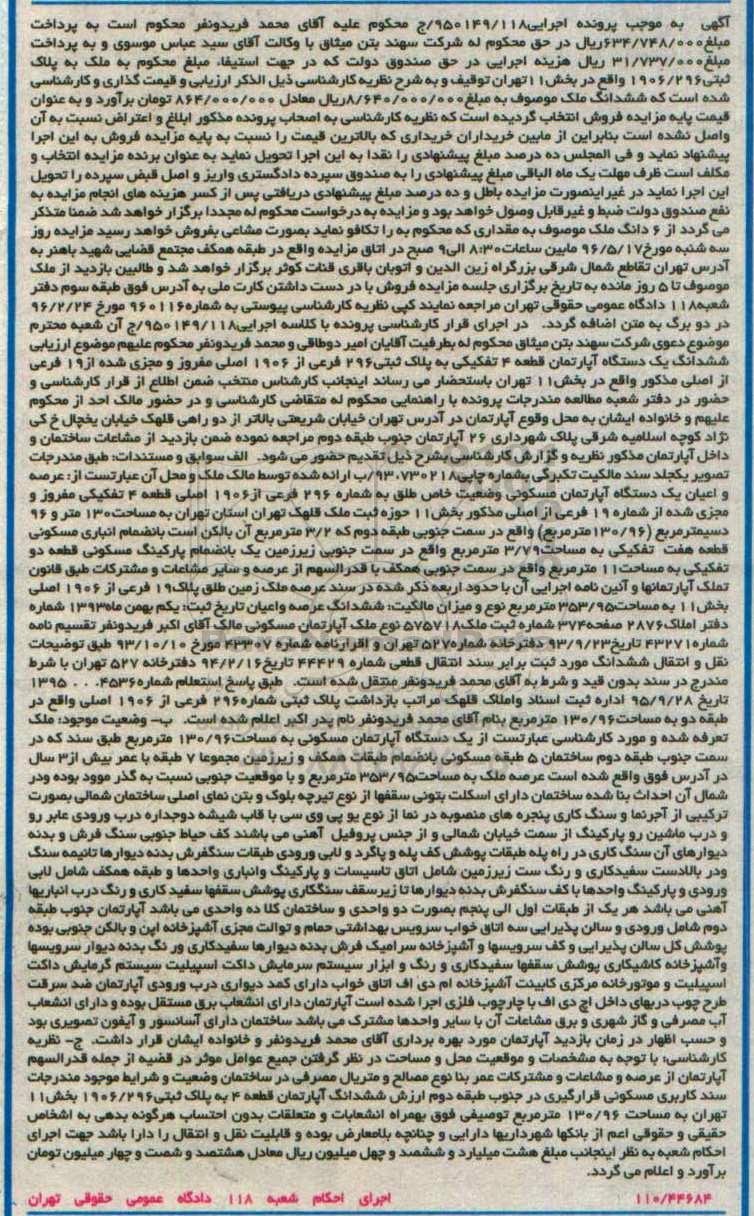 آگهی به موجب پرونده اجرایی۹۵۰۱۴۹/۱۱۸/ج محکوم علیه آقای محمد فریدونفر محکوم است به پرداخت
مبلغ۶۳۴/۷۴۸/۰۰۰ریال در حق محکوم له شرکت سهند بتن میثاق با وکالت آقای سید عباس موسوی و به پرداخت
مبلغ۳۱/۷۳۷/۰۰۰ ریال هزینه اجرایی در حق صندوق دولت که در جهت استیفاء مبلغ محکوم به ملک به پلاک
ثبتی۱۹۰۶/۲۹۶ واقع در بخش۱۱تهران توقیف و به شرح نظریه کارشناسی ذیل الذکر ارزیابی و قیمت گذاری و کارشناسی
شده است که ششدانگ ملک موصوف به مبلغ۸/۶۴۰/۰۰۰/۰۰۰ریال معادل ۸۶۴/۰۰۰/۰۰۰ تومان برآورد و به عنوان
قیمت پایه مزایده فروش انتخاب گردیده است که نظریه کارشناسی به اصحاب پرونده مذکور ابلاغ و اعتراض نسبت به آن
واصل نشده است بنابراین از مابین خریداران خریداری که بالاترین قیمت را نسبت به پایه مزایده فروش به این اجرا
پیشنهاد نماید و فی المجلس ده درصد مبلغ پیشنهادی را نقدا به این اجرا تحویل نماید به عنوان برنده مزایده انتخاب و
مکلف است ظرف مهلت یک ماه الباقی مبلغ پیشنهادی را به صندوق سپرده دادگستری واریز و اصل قبض سپرده را تحویل
این اجرا نماید در غیراینصورت مزایده باطل و ده درصد مبلغ پیشنهادی دریافتی پس از کسر هزینه های انجام مزایده به
نفع صندوق دولت ضبط و غیرقابل وصول خواهد بود و مزایده به درخواست محکوم له مجددا برگزار خواهد شد ضمنا متذکر
می گردد از ۶ دانگ ملک موصوف به مقداری که محکوم به را تکافو نماید بصورت مشاعی بفروش خواهد رسید مزایده روز
سه شنبه مورخ۹۶/۵/۱۷ مابین ساعات۸:۳۰ الی۹ صبح در اتاق مزایده واقع در طبقه همکف مجتمع قضایی شهید باهنر به
آدرس تهران تقاطع شمال شرقی بزرگراه زین الدین و اتوبان باقری قنات کوثر برگزار خواهد شد و طالبین بازدید از ملک
موصوف تا ۵ روز مانده به تاریخ برگزاری جلسه مزایده فروش با در دست داشتن کارت ملی به آدرس فوق طبقه سوم دفتر
شعبه۱۱۸ دادگاه عمومی حقوقی تهران مراجعه نمایند کپی نظریه کارشناسی پیوستی به شماره۹۶۰۱۱۶ مورخ ۹۶/۲/۲۴
در دو برگ به متن اضافه گردد. در اجرای قرار کارشناسی پرونده با کلاسه اجرایی۹۵۰۱۴۹/۱۱۸/ج آن شعبه محترم
موضوع دعوی شرکت سهند بتن میثاق محکوم له بطرفیت آقایان امیر دوطاقی و محمد فریدونفر محکوم علیهم موضوع ارزیابی
ششدانگ یک دستگاه آپارتمان قطعه ۴ تفکیکی به پلاک ثبتی۲۹۶ فرعی از ۱۹۰۶ اصلی مفروز و مجزی شده از۱۹ فرعی
از اصلی مذکور واقع در بخش۱۱ تهران باستحضار می رساند اینجانب کارشناس منتخب ضمن اطلاع از قرار کارشناسی و
حضور در دفتر شعبه مطالعه مندرجات پرونده با راهنمایی محکوم له متقاضی کارشناسی و در حضور مالک احد از محکوم
علیهم و خانواده ایشان به محل وقوع آپارتمان در آدرس تهران خیابان شریعتی بالاتر از دو راهی قلهک خیابان یخچال خ کی
نژاد کوچه اسلامیه شرقی پلاک شهرداری ۲۶ آپارتمان جنوب طبقه دوم مراجعه نموده ضمن بازدید از مشاعات ساختمان و
داخل آپارتمان مذکور نظریه و گزارش کارشناسی بشرح ذیل تقدیم حضور می شود. الف سوابق و مستندات: طبق مندرجات
تصویر یکجلد سند مالکیت تکبرگی بشماره چاپی۹۳۰۷۳۰۲۱۸/ب ارائه شده توسط مالک ملک و محل آن عبارتست از: عرصه
و اعیان یک دستگاه آپارتمان مسکونی وضعیت خاص طلق به شماره ۲۹۶ فرعی از۱۹۰۶ اصلی قطعه ۴ تفکیکی مفروز و
مجزی شده از شماره ۱۹ فرعی از اصلی مذکور بخش۱۱ حوزه ثبت ملک قلهک تهران استان تهران به مساحت۱۳۰ متر و ۹۶
دسیمترمربع (۱۳۰/۹۶مترمربع) واقع در سمت جنوبی طبقه دوم که ۳/۲ مترمربع آن بالکن است بانضمام انباری مسکونی
قطعه هفت تفکیکی به مساحت۳/۷۹ مترمربع واقع در سمت جنوبی زیرزمین یک بانضمام پارکینگ مسکونی قطعه دو
تفکیکی به مساحت۱۱ مترمربع واقع در سمت جنوبی همکف با قدرالسهم از عرصه و سایر مشاعات و مشترکات طبق قانون
تملک آپارتمانها و آئین نامه اجرایی آن با حدود اربعه ذکر شده در سند عرصه ملک زمین طلق پلاک۱۹ فرعی از ۱۹۰۶ اصلی
بخش۱۱ به مساحت۳۵۳/۹۵ مترمربع نوع و میزان مالکیت: ششدانگ عرصه واعیان تاریخ ثبت: یکم بهمن ماه۱۳۹۳ شماره
دفتر املاک۲۸۷۶ صفحه۳۷۴ شماره ثبت ملک۵۷۵۷۱۸ نوع ملک آپارتمان مسکونی مالک آقای اکبر فریدونفر تقسیم نامه
شماره۴۳۲۷۱ تاریخ۹۳/۹/۲۳ دفترخانه شماره۵۲۷ تهران و اقرارنامه شماره ۴۳۳۰۷ مورخ ۹۳/۱۰/۱۰ طبق توضیحات
نقل و انتقال ششدانگ مورد ثبت برابر سند انتقال قطعی شماره ۴۴۴۲۹ تاریخ۹۴/۲/۱۶ دفترخانه ۵۲۷ تهران با شرط
مندرج در سند بدون قید و شرط به آقای محمد فریدونفر منتقل شده است. طبق پاسخ استعلام شماره۴۵۳۶. . . ۱۳۹۵
تاریخ ۹۵/۹/۲۸ اداره ثبت اسناد واملاک قلهک مراتب بازداشت پلاک ثبتی شماره۲۹۶ فرعی از ۱۹۰۶ اصلی واقع در
طبقه دو به مساحت۱۳۰/۹۶ مترمربع بنام آقای محمد فریدونفر نام پدر اکبر اعلام شده است. ب- وضعیت موجود: ملک
تعرفه شده و مورد کارشناسی عبارتست از یک دستگاه آپارتمان مسکونی به مساحت۱۳۰/۹۶ مترمربع طبق سند که در
سمت جنوب طبقه دوم ساختمان ۵ طبقه مسکونی بانضمام طبقات همکف و زیرزمین مجموعا ۷ طبقه با عمر بیش از۳ سال
در آدرس فوق واقع شده است عرصه ملک به مساحت۳۵۳/۹۵ مترمربع و با موقعیت جنوبی نسبت به گذر موود بوده ودر
شمال آن احداث بنا شده ساختمان دارای اسکلت بتونی سقفها از نوع تیرچه بلوک و بتن نمای اصلی ساختمان شمالی بصورت
ترکیبی از آجرنما و سنگ کاری پنجره های منصوبه در نما از نوع یو پی وی سی با قاب شیشه دوجداره درب ورودی عابر رو
و درب ماشین رو پارکینگ از سمت خیابان شمالی و از جنس پروفیل آهنی می باشند کف حیاط جنوبی سنگ فرش و بدنه
دیوارهای آن سنگ کاری در راه پله طبقات پوشش کف پله و پاگرد و لابی ورودی طبقات سنگفرش بدنه دیوارها تانیمه سنگ
ودر بالادست سفیدکاری و رنگ ست زیرزمین شامل اتاق تاسیسات و پارکینگ وانباری واحدها و طبقه همکف شامل لابی
ورودی و پارکینگ واحدها با کف سنگفرش بدنه دیوارها تا زیرسقف سنگکاری پوشش سقفها سفید کاری و رنگ درب انباریها
آهنی می باشد هر یک از طبقات اول الی پنجم بصورت دو واحدی و ساختمان کلا ده واحدی می باشد آپارتمان جنوب طبقه
دوم شامل ورودی و سالن پذیرایی سه اتاق خواب سرویس بهداشتی حمام و توالت مجزی آشپزخانه اپن و بالکن جنوبی بوده
پوشش کل سالن پذیرایی و کف سرویسها و آشپزخانه سرامیک فرش بدنه دیوارها سفیدکاری ور نگ بدنه دیوار سرویسها
وآشپزخانه کاشیکاری پوشش سقفها سفیدکاری و رنگ و ابزار سیستم سرمایش داکت اسپیلیت سیستم گرمایش داکت
اسپیلیت و موتورخانه مرکزی کابینت آشپزخانه ام دی اف اتاق خواب دارای کمد دیواری درب ورودی آپارتمان ضد سرقت
طرح چوب دربهای داخل اچ دی اف با چارچوب فلزی اجرا شده است آپارتمان دارای انشعاب برق مستقل بوده و دارای انشعاب
آب مصرفی و گاز شهری و برق مشاعات آن با سایر واحدها مشترک می باشد ساختمان دارای آسانسور و آیفون تصویری بود
و حسب اظهار در زمان بازدید آپارتمان مورد بهره برداری آقای محمد فریدونفر و خانواده ایشان قرار داشت. ج- نظریه
کارشناسی: با توجه به مشخصات و موقعیت محل و مساحت در نظر گرفتن جمیع عوامل موثر در قضیه از جمله قدرالسهم
آپارتمان از عرصه و مشاعات و مشترکات عمر بنا نوع مصالح و متریال مصرفی در ساختمان وضعیت و شرایط موجود مندرجات
سند کاربری مسکونی قرارگیری در جنوب طبقه دوم ارزش ششدانگ آپارتمان قطعه ۴ به پلاک ثبتی۱۹۰۶/۲۹۶ بخش۱۱
تهران به مساحت ۱۳۰/۹۶ مترمربع توصیفی فوق بهمراه انشعابات و متعلقات بدون احتساب هرگونه بدهی به اشخاص
حقیقی و حقوقی اعم از بانکها شهرداریها دارایی و چنانچه بلامعارض بوده و قابلیت نقل و انتقال را دارا باشد جهت اجرای
احکام شعبه به نظر اینجانب مبلغ هشت میلیارد و ششصد و چهل میلیون ریال معادل هشتصد و شصت و چهار میلیون تومان
برآورد و اعلام می گردد.
۱۱۰/۴۴۶۸۴ اجرای احکام شعبه ۱۱۸ دادگاه عمومی حقوقی تهران